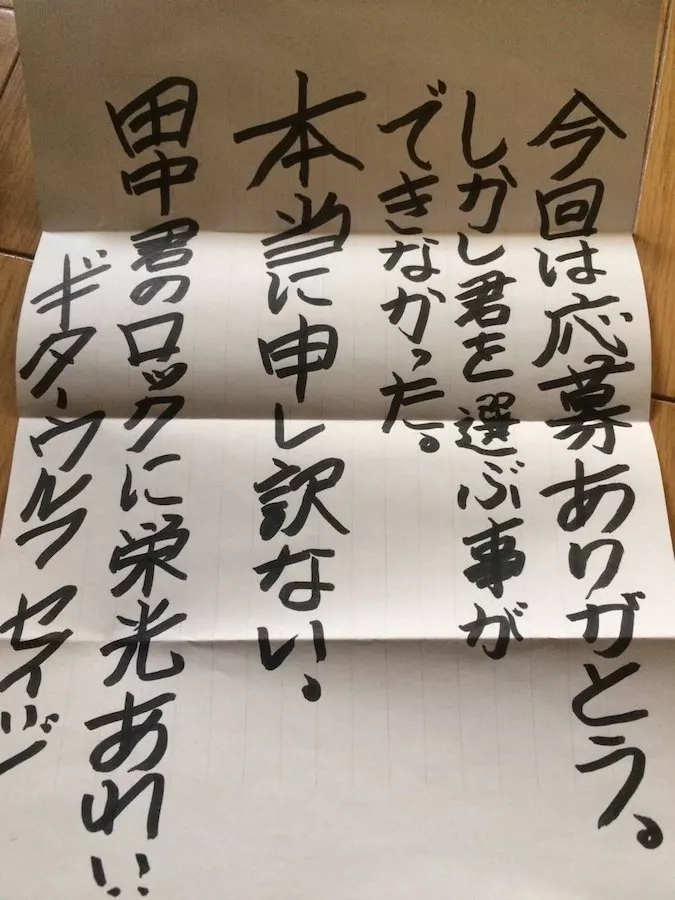 今回は応募ありがとう。
しかし君を選ぶ事が
できなかった。
本当に申し訳ない。
田中君のロックに栄光あれ!!
ギターウルフ セイジ